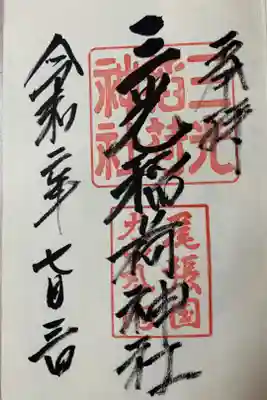 奉拝
三光稲荷神社
令和二年七月三日
三光
稲荷
神社
尾張国
犬山